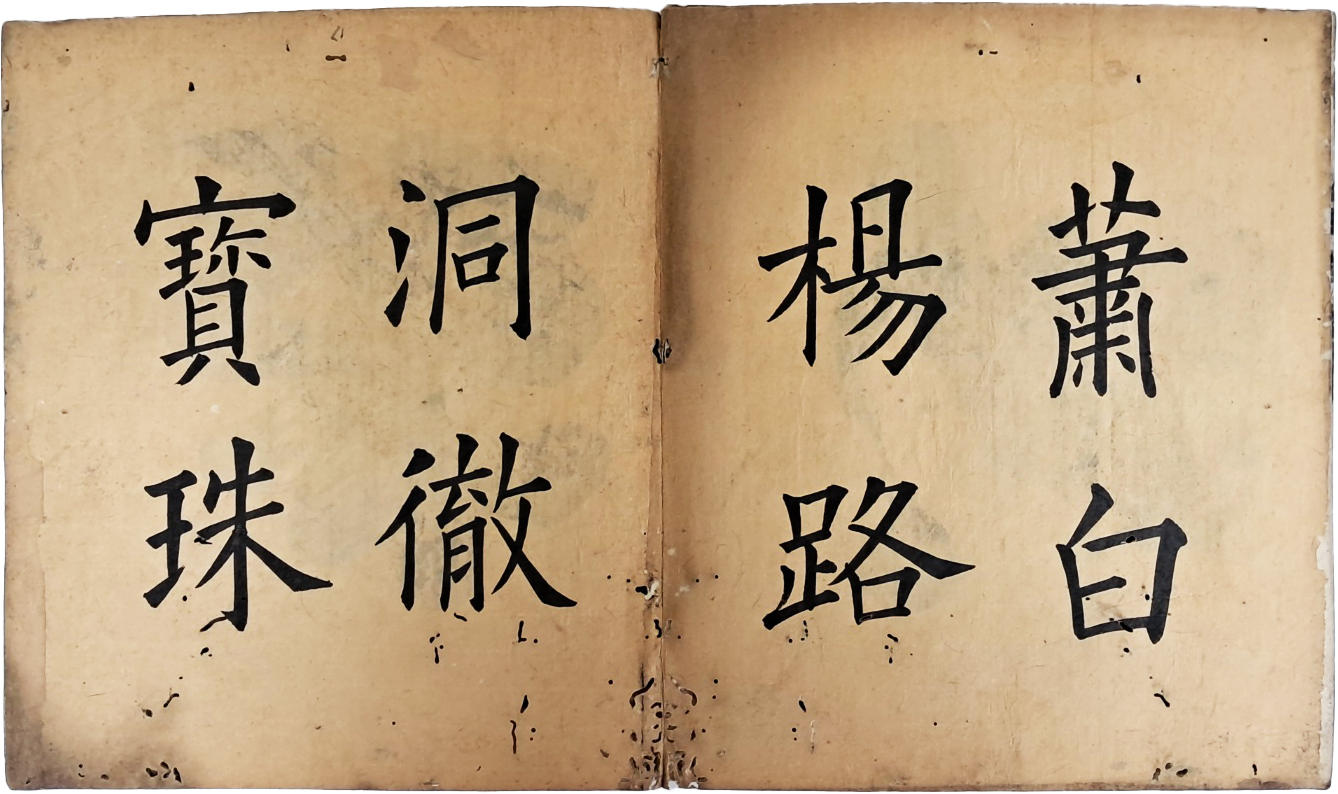 蕭白
楊路
洞徹
寶珠